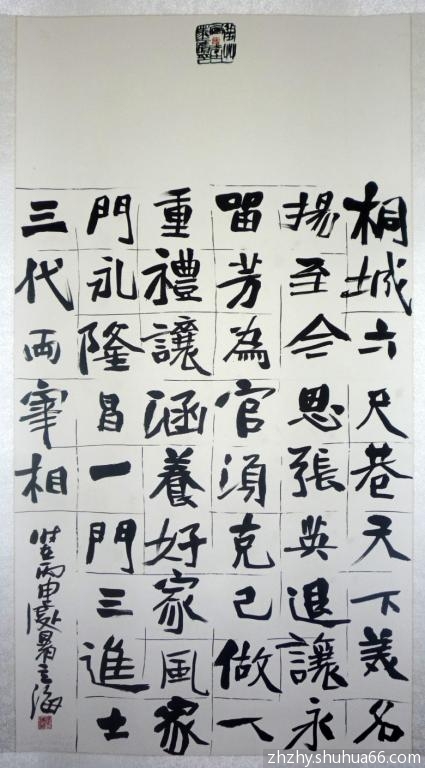 桐城六尺巷天下美名
揚至今思張英退讓永
留芳為官須克己做人
重禮讓涵養好家風家
門永隆昌一門三進士
三代両宰相
丙申處暑海
zhzhy.shuhua66.com